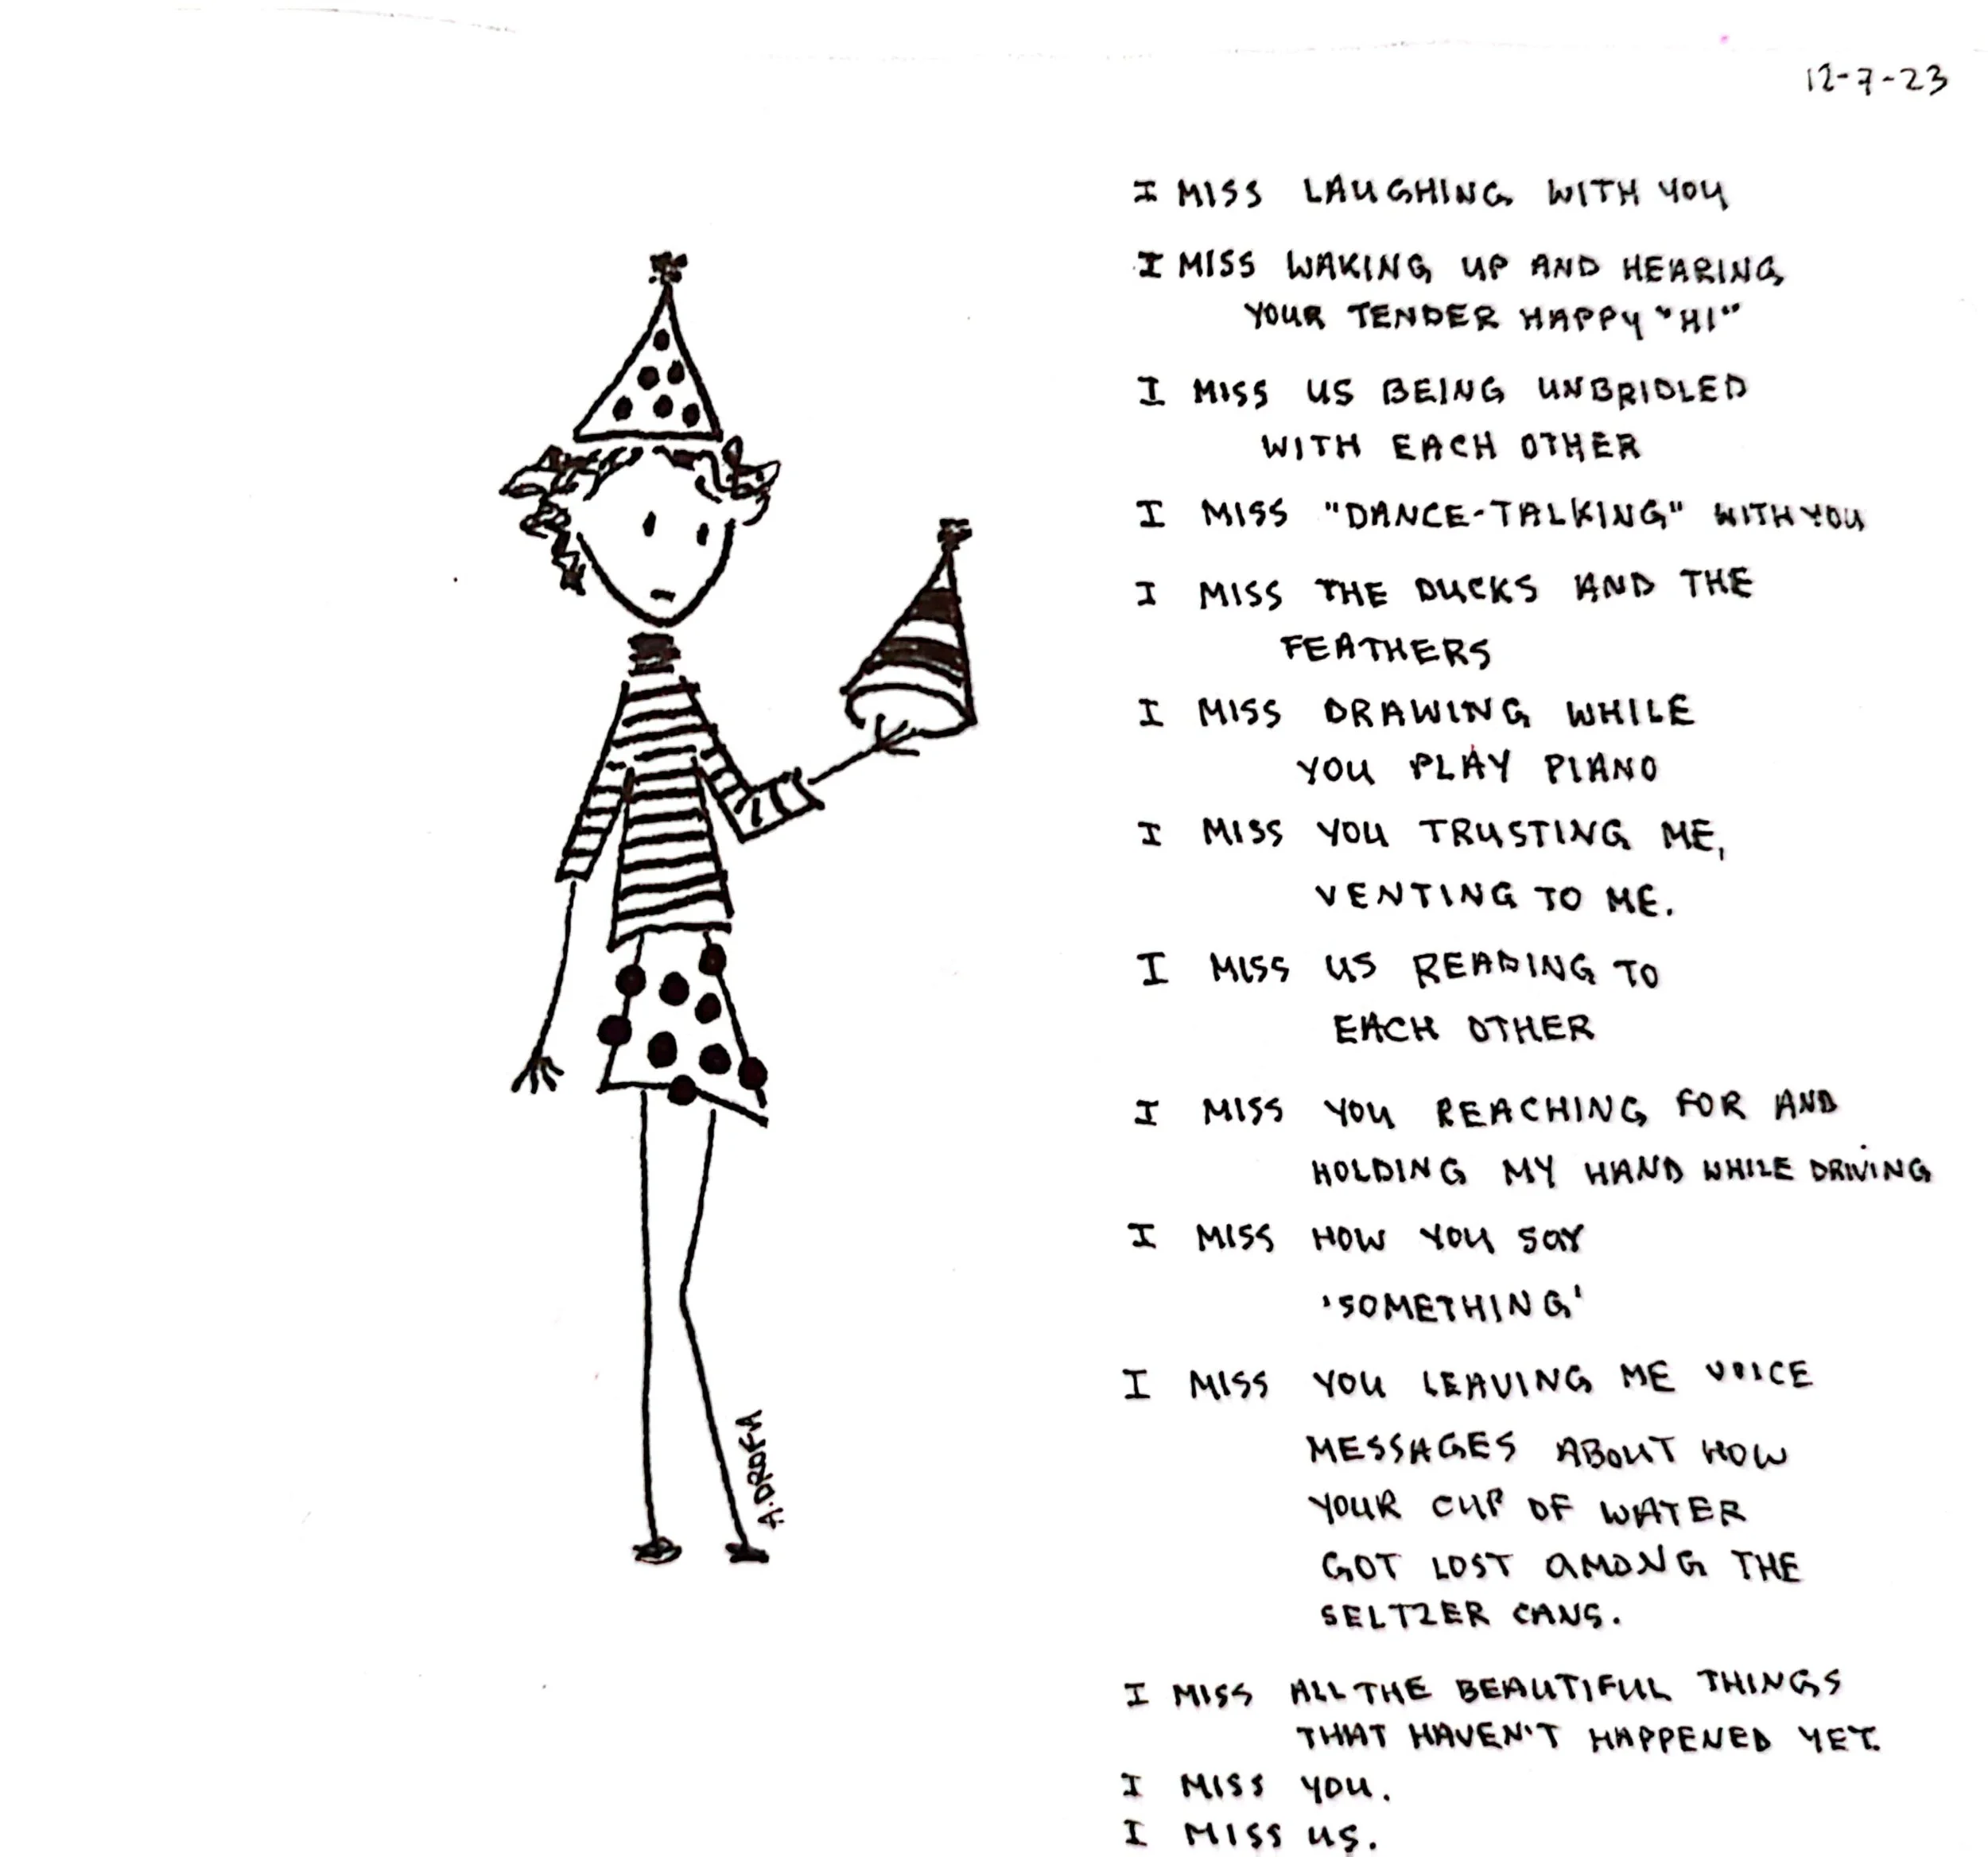 12-7-23
I MISS LAUGHING WITH YOU
I MISS WAKING UP AND HEARING
YOUR TENDER HAPPY "HI"
I MISS US BEING UNBRIDLED
WITH EACH OTHER
I MISS "DANCE-TALKING" WITH YOU
I MISS THE DUCKS AND THE
FEATHERS
I MISS DRAWING WHILE
YOU PLAY PIANO
I MISS YOU TRUSTING ME,
VENTING TO ME.
I MISS US READING TO
EACH OTHER
I MISS YOU REACHING FOR AND
HOLDING MY HAND WHILE DRIVING
I MISS HOW YOU SAY
'SOMETHING'
I MISS YOU LEAVING ME VOICE
MESSAGES ABOUT HOW
YOUR CUP OF WATER
GOT LOST AMONG THE
SELTZER CANS.
I MISS ALL THE BEAUTIFUL THINGS
THAT HAVEN'T HAPPENED YET.
I MISS YOU.
I MISS US.
A.DROFA